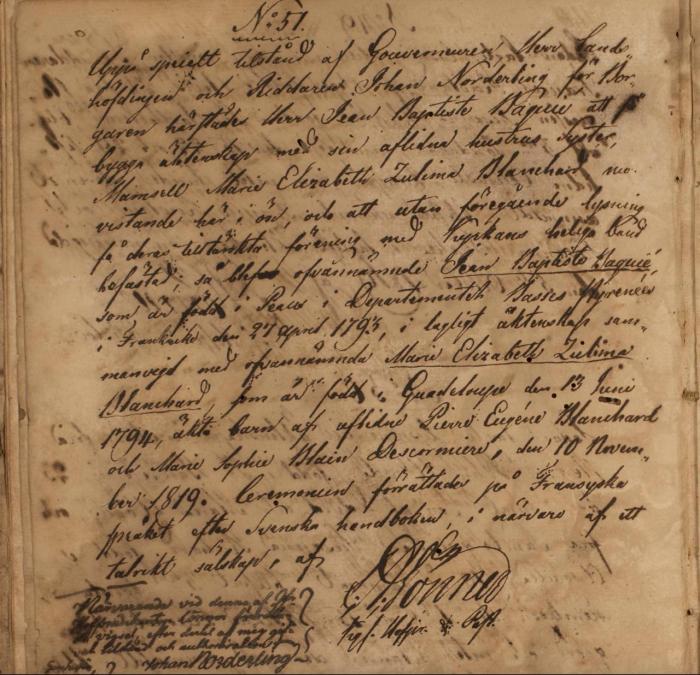 No 51.
Uppå speciell tilstånd af Gouverneuren Herr Lands-
höfdingen och Riddaren Johan Norderling för Bor-
garen härstädes Herr Jean Baptiste Baguié att få
bygga äktenskap med sin aflidna hustrus syster,
Mamsell Marie Elizabeth Zulima Blanchard, nu
vistande här i ön, och att utan föregående lysning
få deras tiltänkta förening med Kyrkans helga band
befästad; så blef ofvannämnde Jean Baptiste Baguié,
som är född i Departementet Basses Pyrenées
i Frankrike den 27 April 1793, i lagligt äktenskap sam-
manvigd med ofvannämnda Marie Elizabeth Zulima
Blanchard, som är född i Guadeloupe den 13 Junii
1794, äkta barn af aflidne Pierre Eugéne Blanchard
och Marie Sophie Blain Descormiers, den 10 Novem-
ber 1819. Ceremonien förrättades på Fransyska
språket efter Svenska handboken, i närvaro af ett
talrikt sälskap, af
Närvarande vid denna af
vigsel, efter det af mig
tilstånd och authorisation
Johan Norderling